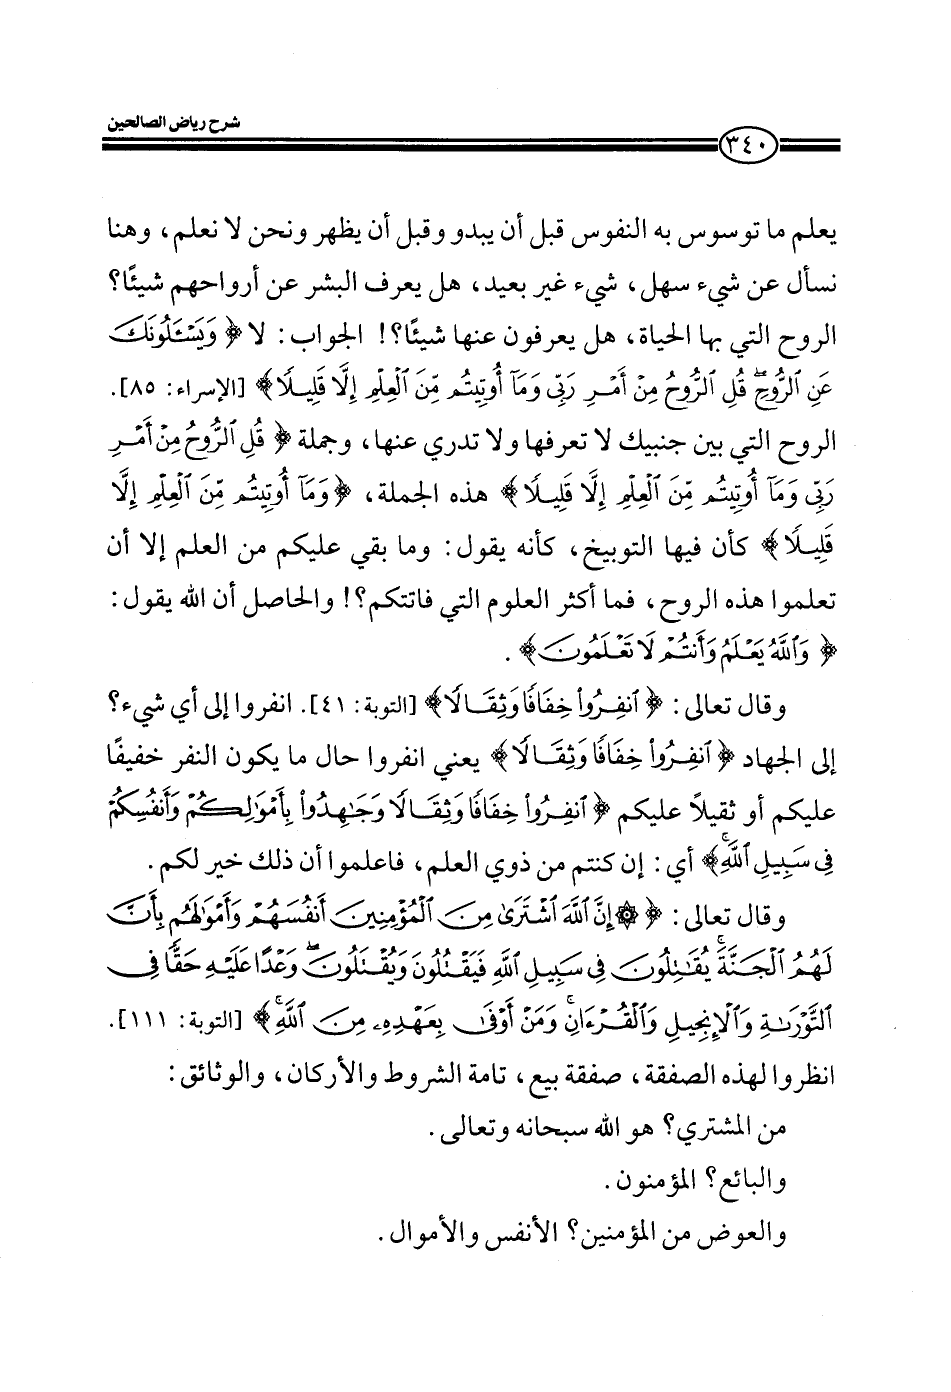 شرح رياض الصالحين
٣٤٠
يعلم ما توسوس به النفوس قبل أن يبدو وقبل أن يظهر ونحن لا نعلم، وهنا
نسأل عن شيء سهل، شيء غير بعيد، هل يعرف البشر عن أرواحهم شيئًا؟
الروح التي بها الحياة، هل يعرفون عنها شيئًا؟! الجواب: لا ﴿ وَيَسْـَٔلُونَكَ
عَنِ ٱلرُّوحِۖ قُلِ ٱلرُّوحُ مِنْ أَمْرِ رَبِّى وَمَآ أُوتِيتُم مِّنَ ٱلْعِلْمِ إِلَّا قَلِيلًا﴾ [الإسراء: ٨٥].
الروح التي بين جنبيك لا تعرفها ولا تدري عنها، وجملة ﴿ قُلِ ٱلرُّوحُ مِنْ أَمْرِ
رَبِّى وَمَآ أُوتِيتُم مِّنَ ٱلْعِلْمِ إِلَّا قَلِيلًا﴾ هذه الجملة، ﴿وَمَآ أُوتِيتُم مِّنَ ٱلْعِلْمِ إِلَّا
قَلِيلًا﴾ كأن فيها التوبيخ، كأنه يقول: وما بقي عليكم من العلم إلا أن
تعلموا هذه الروح، فما أكثر العلوم التي فاتتكم؟! والحاصل أن الله يقول:
﴿ وَٱللَّهُ يَعْلَمُ وَأَنتُمْ لَا تَعْلَمُونَ﴾ .
وقال تعالى: ﴿ ٱنفِرُوا۟ خِفَافًا وَثِقَالًا﴾ [التوبة: ٤١]. انفروا إلى أي شيء؟
إلى الجهاد ﴿ ٱنفِرُوا۟ خِفَافًا وَثِقَالًا﴾ يعني انفروا حال ما يكون النفر خفيفًا
عليكم أو ثقيلاً عليكم ﴿ ٱنفِرُوا۟ خِفَافًا وَثِقَالًا وَجَٰهِدُوا۟ بِأَمْوَٰلِكُمْ وَأَنفُسِكُمْ
فِى سَبِيلِ ٱللَّهِۚ﴾ أي: إن كنتم من ذوي العلم، فاعلموا أن ذلك خير لكم.
وقال تعالى: ﴿ ۞ إِنَّ ٱللَّهَ ٱشْتَرَىٰ مِنَ ٱلْمُؤْمِنِينَ أَنفُسَهُمْ وَأَمْوَٰلَهُم بِأَنَّ
لَهُمُ ٱلْجَنَّةَۚ يُقَٰتِلُونَ فِى سَبِيلِ ٱللَّهِ فَيَقْتُلُونَ وَيُقْتَلُونَۖ وَعْدًا عَلَيْهِ حَقًّا فِى
ٱلتَّوْرَىٰةِ وَٱلْإِنجِيلِ وَٱلْقُرْءَانِۚ وَمَنْ أَوْفَىٰ بِعَهْدِهِۦ مِنَ ٱللَّهِۚ﴾ [التوبة: ١١١].
انظروا لهذه الصفقة، صفقة بيع، تامة الشروط والأركان، والوثائق:
من المشتري؟ هو الله سبحانه وتعالى.
والبائع؟ المؤمنون.
والعوض من المؤمنين؟ الأنفس والأموال.